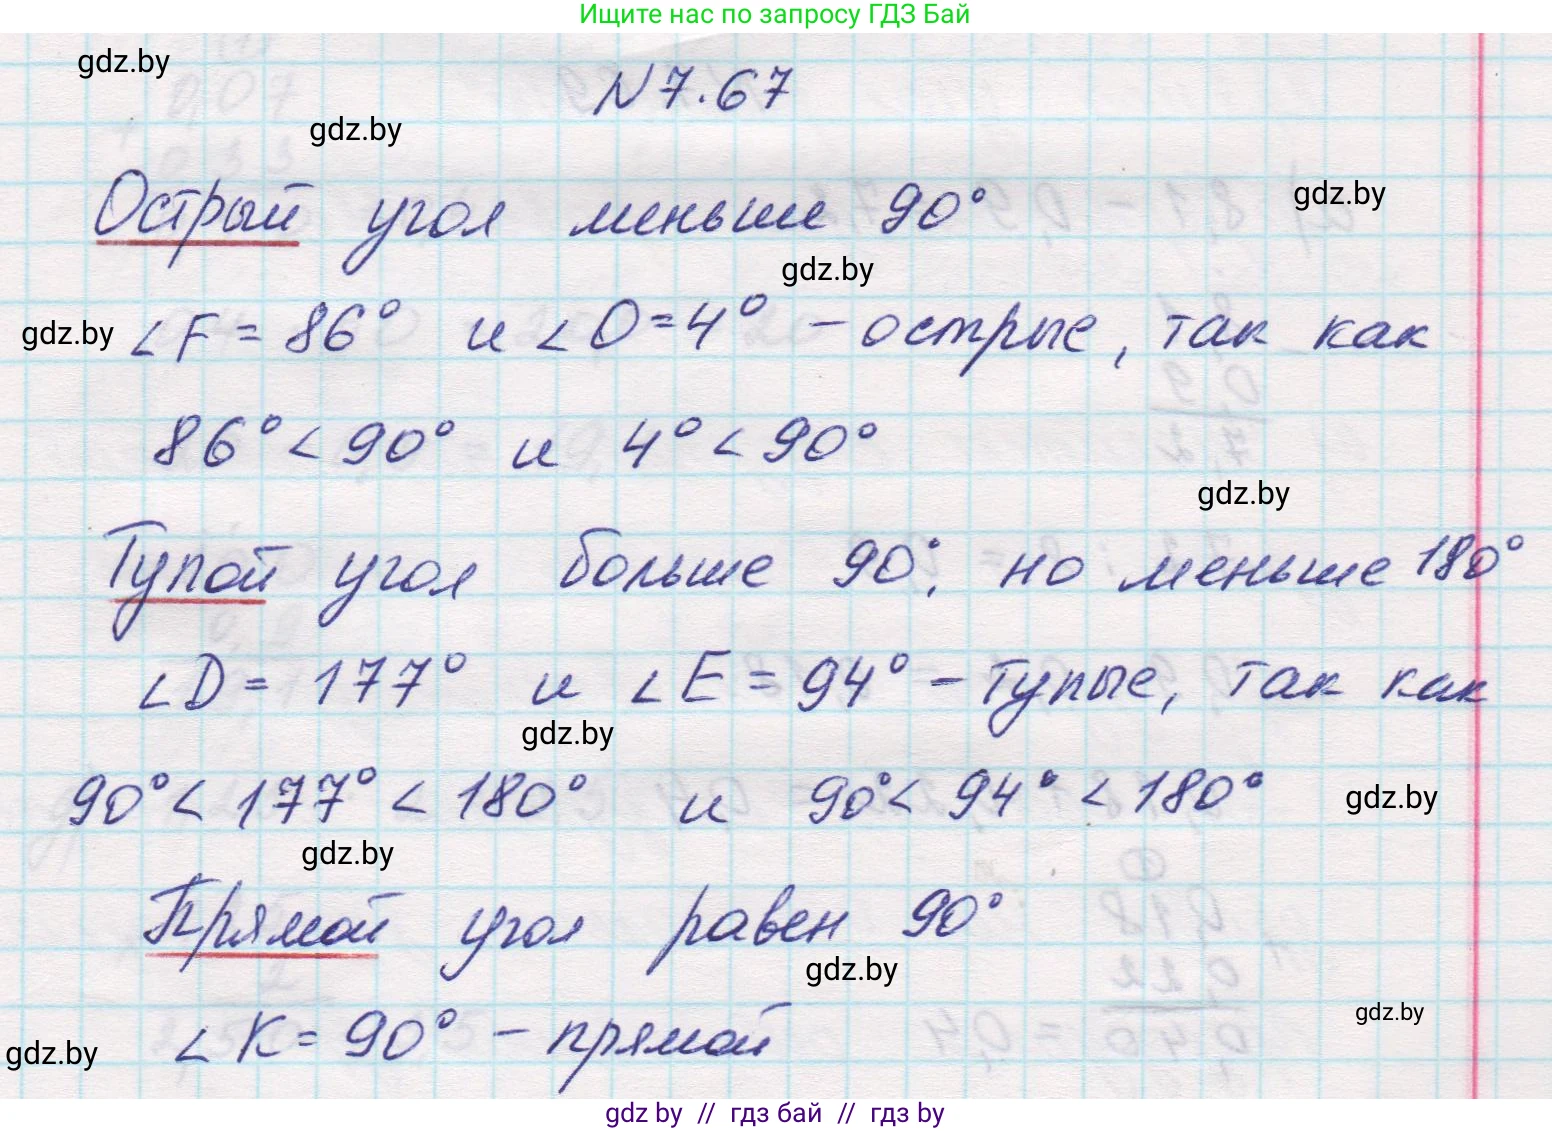 Ищите нас по запросу ГДЗ Бай
gdz.by
N 7.67
gdz.by
Острый угол меньше 90°
gdz.by
gdz.by
∠F = 86° и ∠O = 4° – острые, так как
gdz.by
86° < 90° и 4° < 90°
gdz.by
Тупой угол больше 90°, но меньше 180°
∠D = 177° и ∠E = 94° – тупые, так как
gdz.by
90° < 177° < 180° и 90° < 94° < 180°
gdz.by
gdz.by
Прямой угол равен 90°
gdz.by
gdz.by
∠K = 90° – прямой
gdz.by
gdz by // гдз бай // гдз by